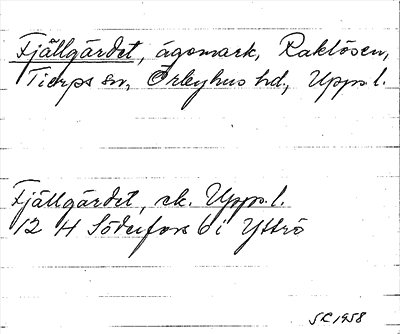 Fjällgärdet, ägomark, Raklösen,
Tierps sn, Örbyhus hd., Upps. l.
Fjällgärdet, ek. Upps. l.
12 H Söderfors b i Yttrö
SC 1958